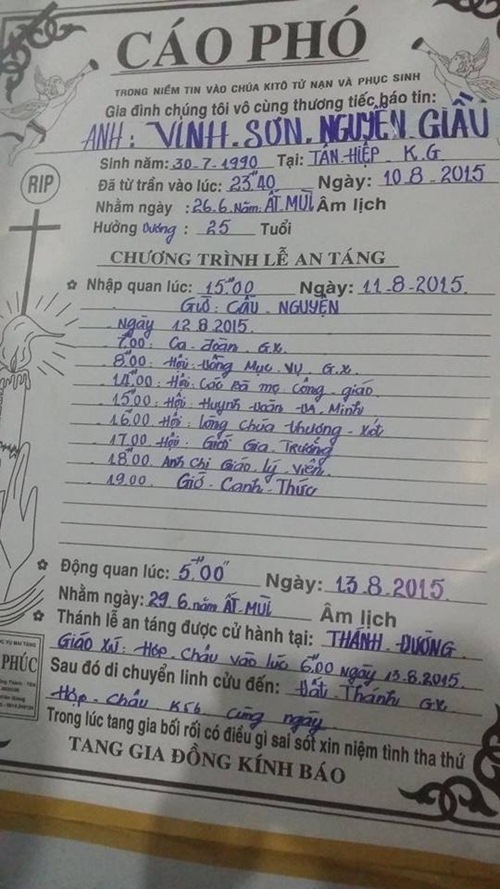 CÁO PHÓ
TRONG NIỀM TIN VÀO CHÚA KITÔ TỬ NẠN VÀ PHỤC SINH
Gia đình chúng tôi vô cùng thương tiếc báo tin:
ANH: VINH. SƠN. NGUYỄN GIẦU
RIP
Sinh năm: 30-7-1990 Tại: TÂN-HIỆP K.G
Đã từ trần vào lúc: 23H40 Ngày: 10.8-2015
Nhằm ngày : 26.6. Năm. ẤT MUÌ Âm lịch
Hưởng Dương : 25 Tuổi
CHƯƠNG TRÌNH LỄ AN TÁNG
Nhập quan lúc: 15H00 Ngày: 11-8-2015
GIỜ: CẦU NGUYỆN
Ngày 12.8.2015.
7.00: Ca-đoàn G.x.
8.00: Hội-đồng Mục Vụ G.x.
14H00: Hội Các Bà mẹ Công giáo
15H00: Hội: Huynh Đoàn Minh
16.00 Hội: Lòng Chúa thương-Xót
17.00 Hội Giới Gia Trưởng
18H00. Anh Chị Giáo lý viên.
19.00. Giờ-Canh-Thức
Động quan lúc: 5H00' Ngày: 13.8-2015.
Nhằm ngày: 29.6.năm ẤT MUÌ Âm lịch
Thánh lễ an táng được cử hành tại: THÁNH-ĐƯỜNG
Giáo Xứ: Hợp-Châu vào lúc 6H00 Ngày 13.8.2015.
PHÚC
Sau đó di chuyển linh cửu đến: Đất Thánh Gx
Hợp-Châu cùng ngày
Trong lúc tang gia bối rối có điều gì sai sót xin niệm tình tha thứ
TANG GIA ĐỒNG KÍNH BÁO